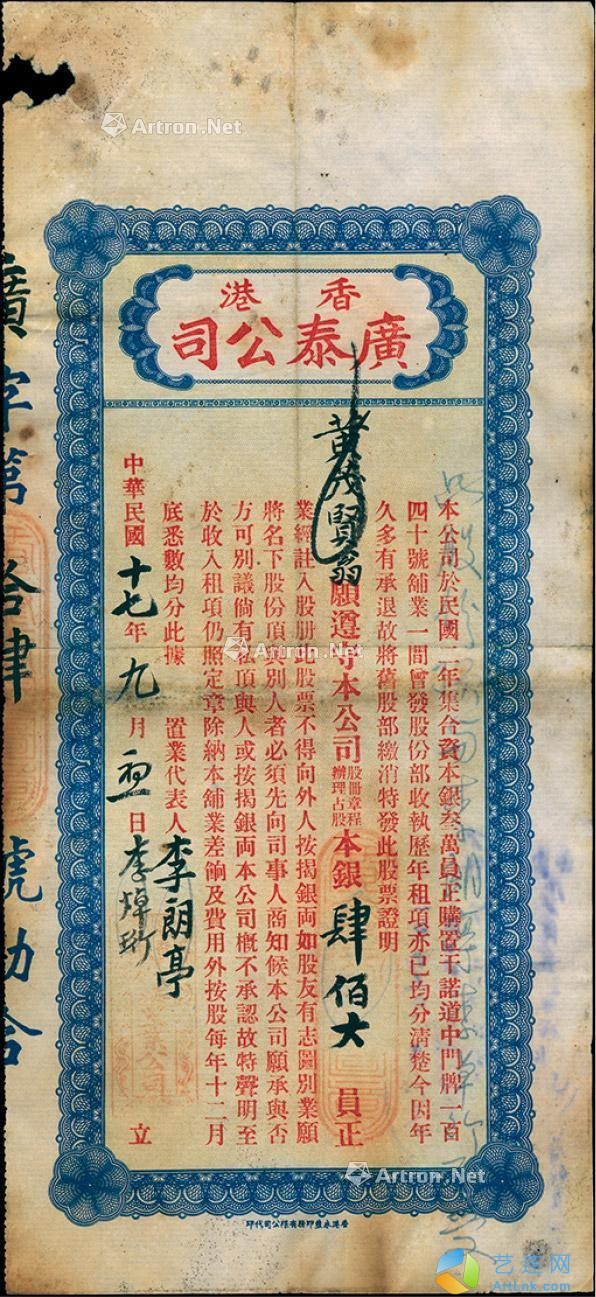 香港
廣泰公司
本公司於民國二年集合資本銀叁萬員正購置干諾道中門牌一百
四十號舖業一間曾發股份部收執歷年租項亦已均分清楚今因年
久多有承退故將舊股部繳消特發此股票證明
黃茂賢翁願遵守本公司股冊章程辦理占股本銀肆佰大員正
業經註入股册此股票不得向外人按揭銀両如股友有志圖別業願
將名下股份頂與別人者必須先向司事人商知候本公司願承與否
方可別議倘有私頂與人或按揭銀両本公司概不承認故特聲明至
於收入租項仍照定章除納本舖業差餉及費用外按股每年十二月
底悉數均分此據
置業代表人李朗亭
李焯
中華民國十七年九月日立
廣字第拾肆號
香港永盛印務有限公司代印
Artron.Net
Artron.Net
Artron.Net
Artron.Net
艺连网
ArtLnk.com